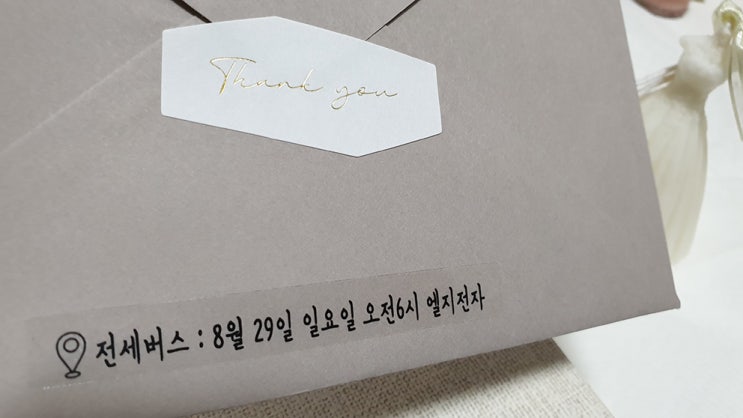 Thank you
전세버스 : 8월 29일 일요일 오전6시 엘지전자